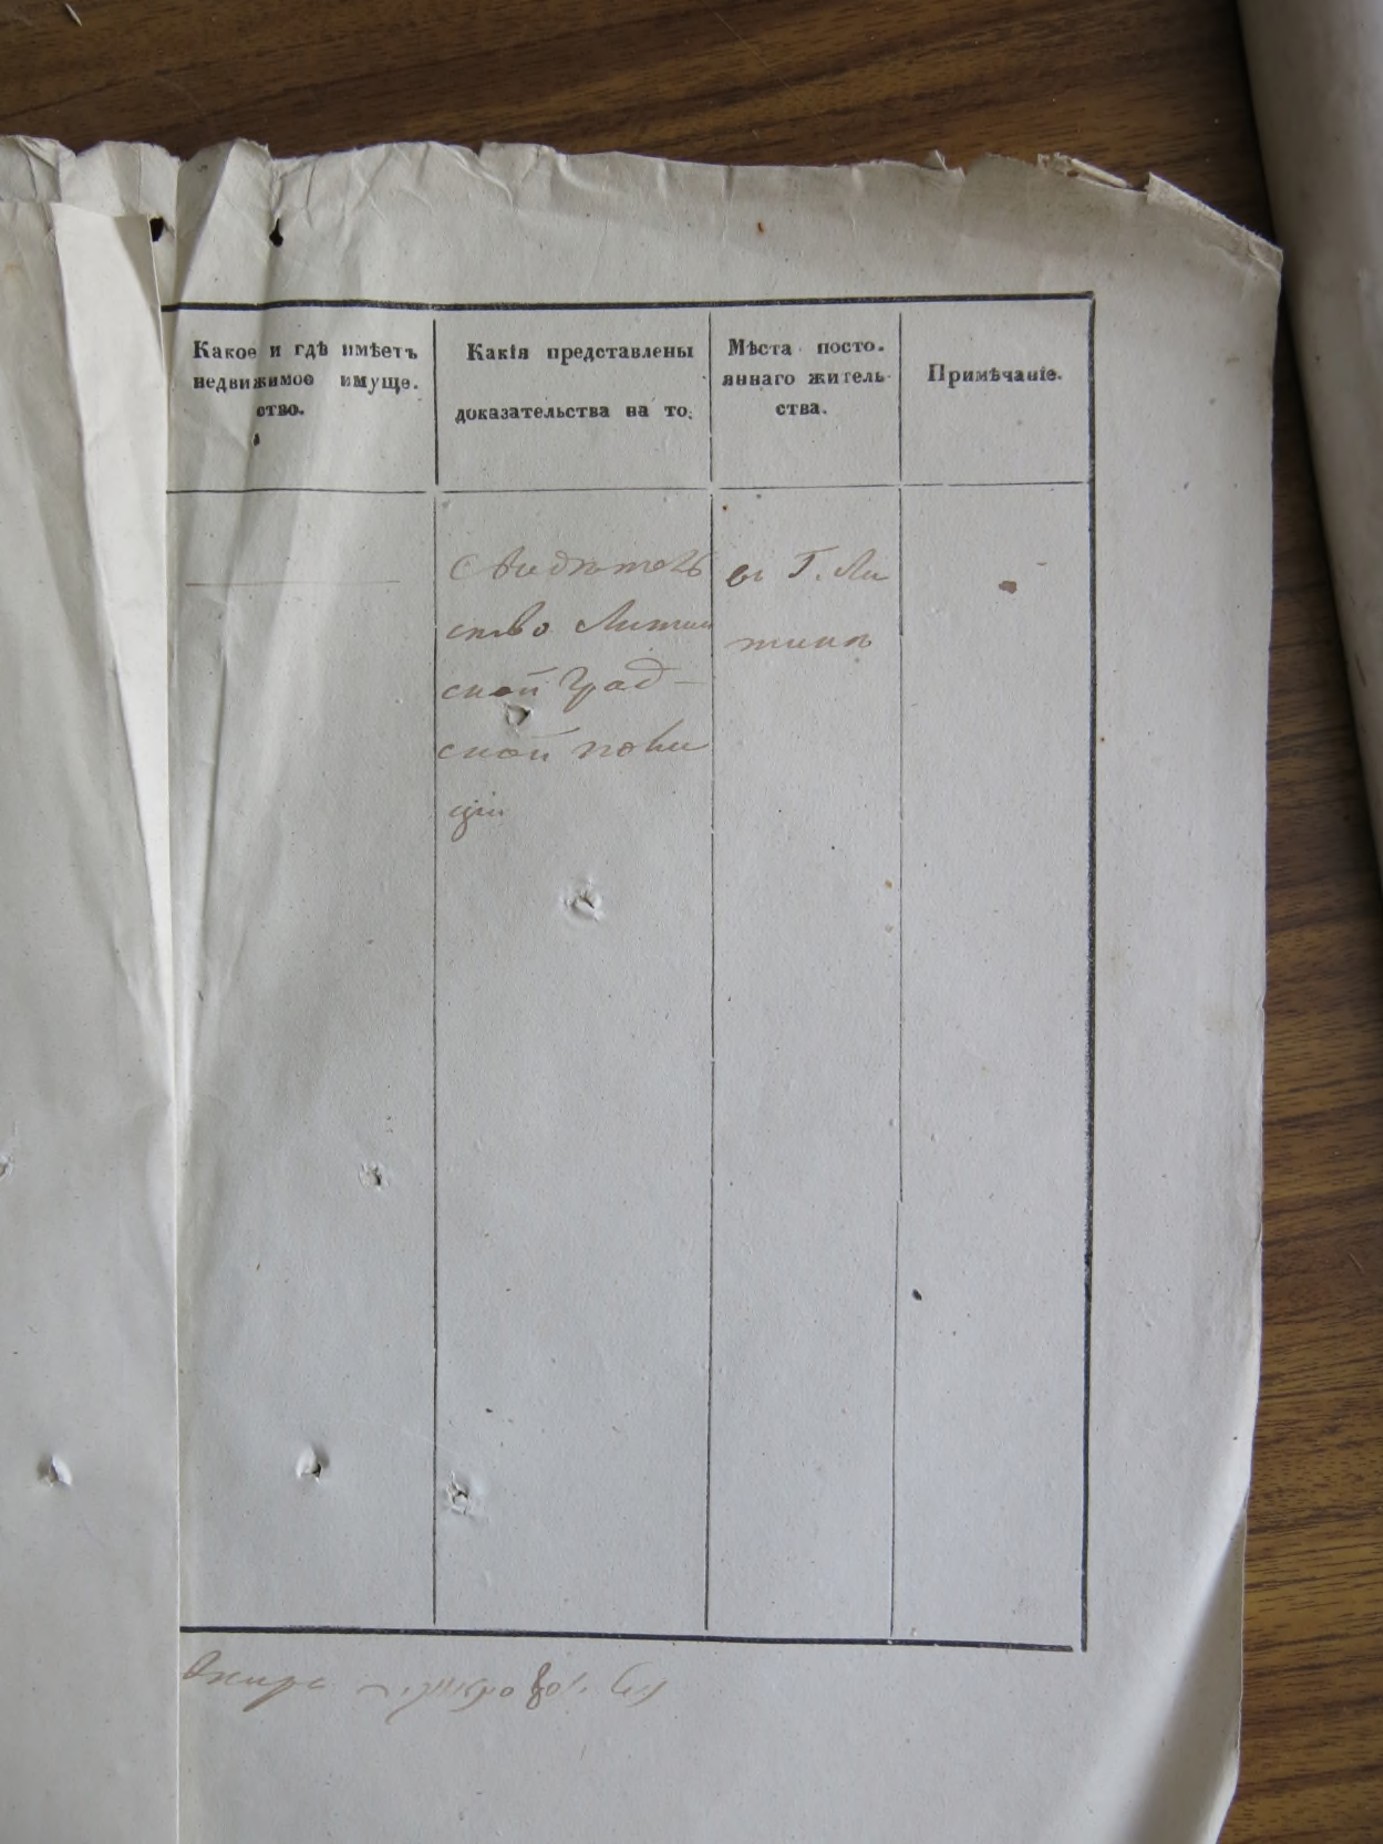 Какое и гдѣ имѣетъ
недвижимое имуще.
ство.
Какія представлены
доказательства на то.
Мѣста посто.
яннаго житель-
ства.
Примѣчаніе.
Свидѣтель
ство Литин
ской Град-
ской поли
ціи
въ Г. Ли
тинѣ